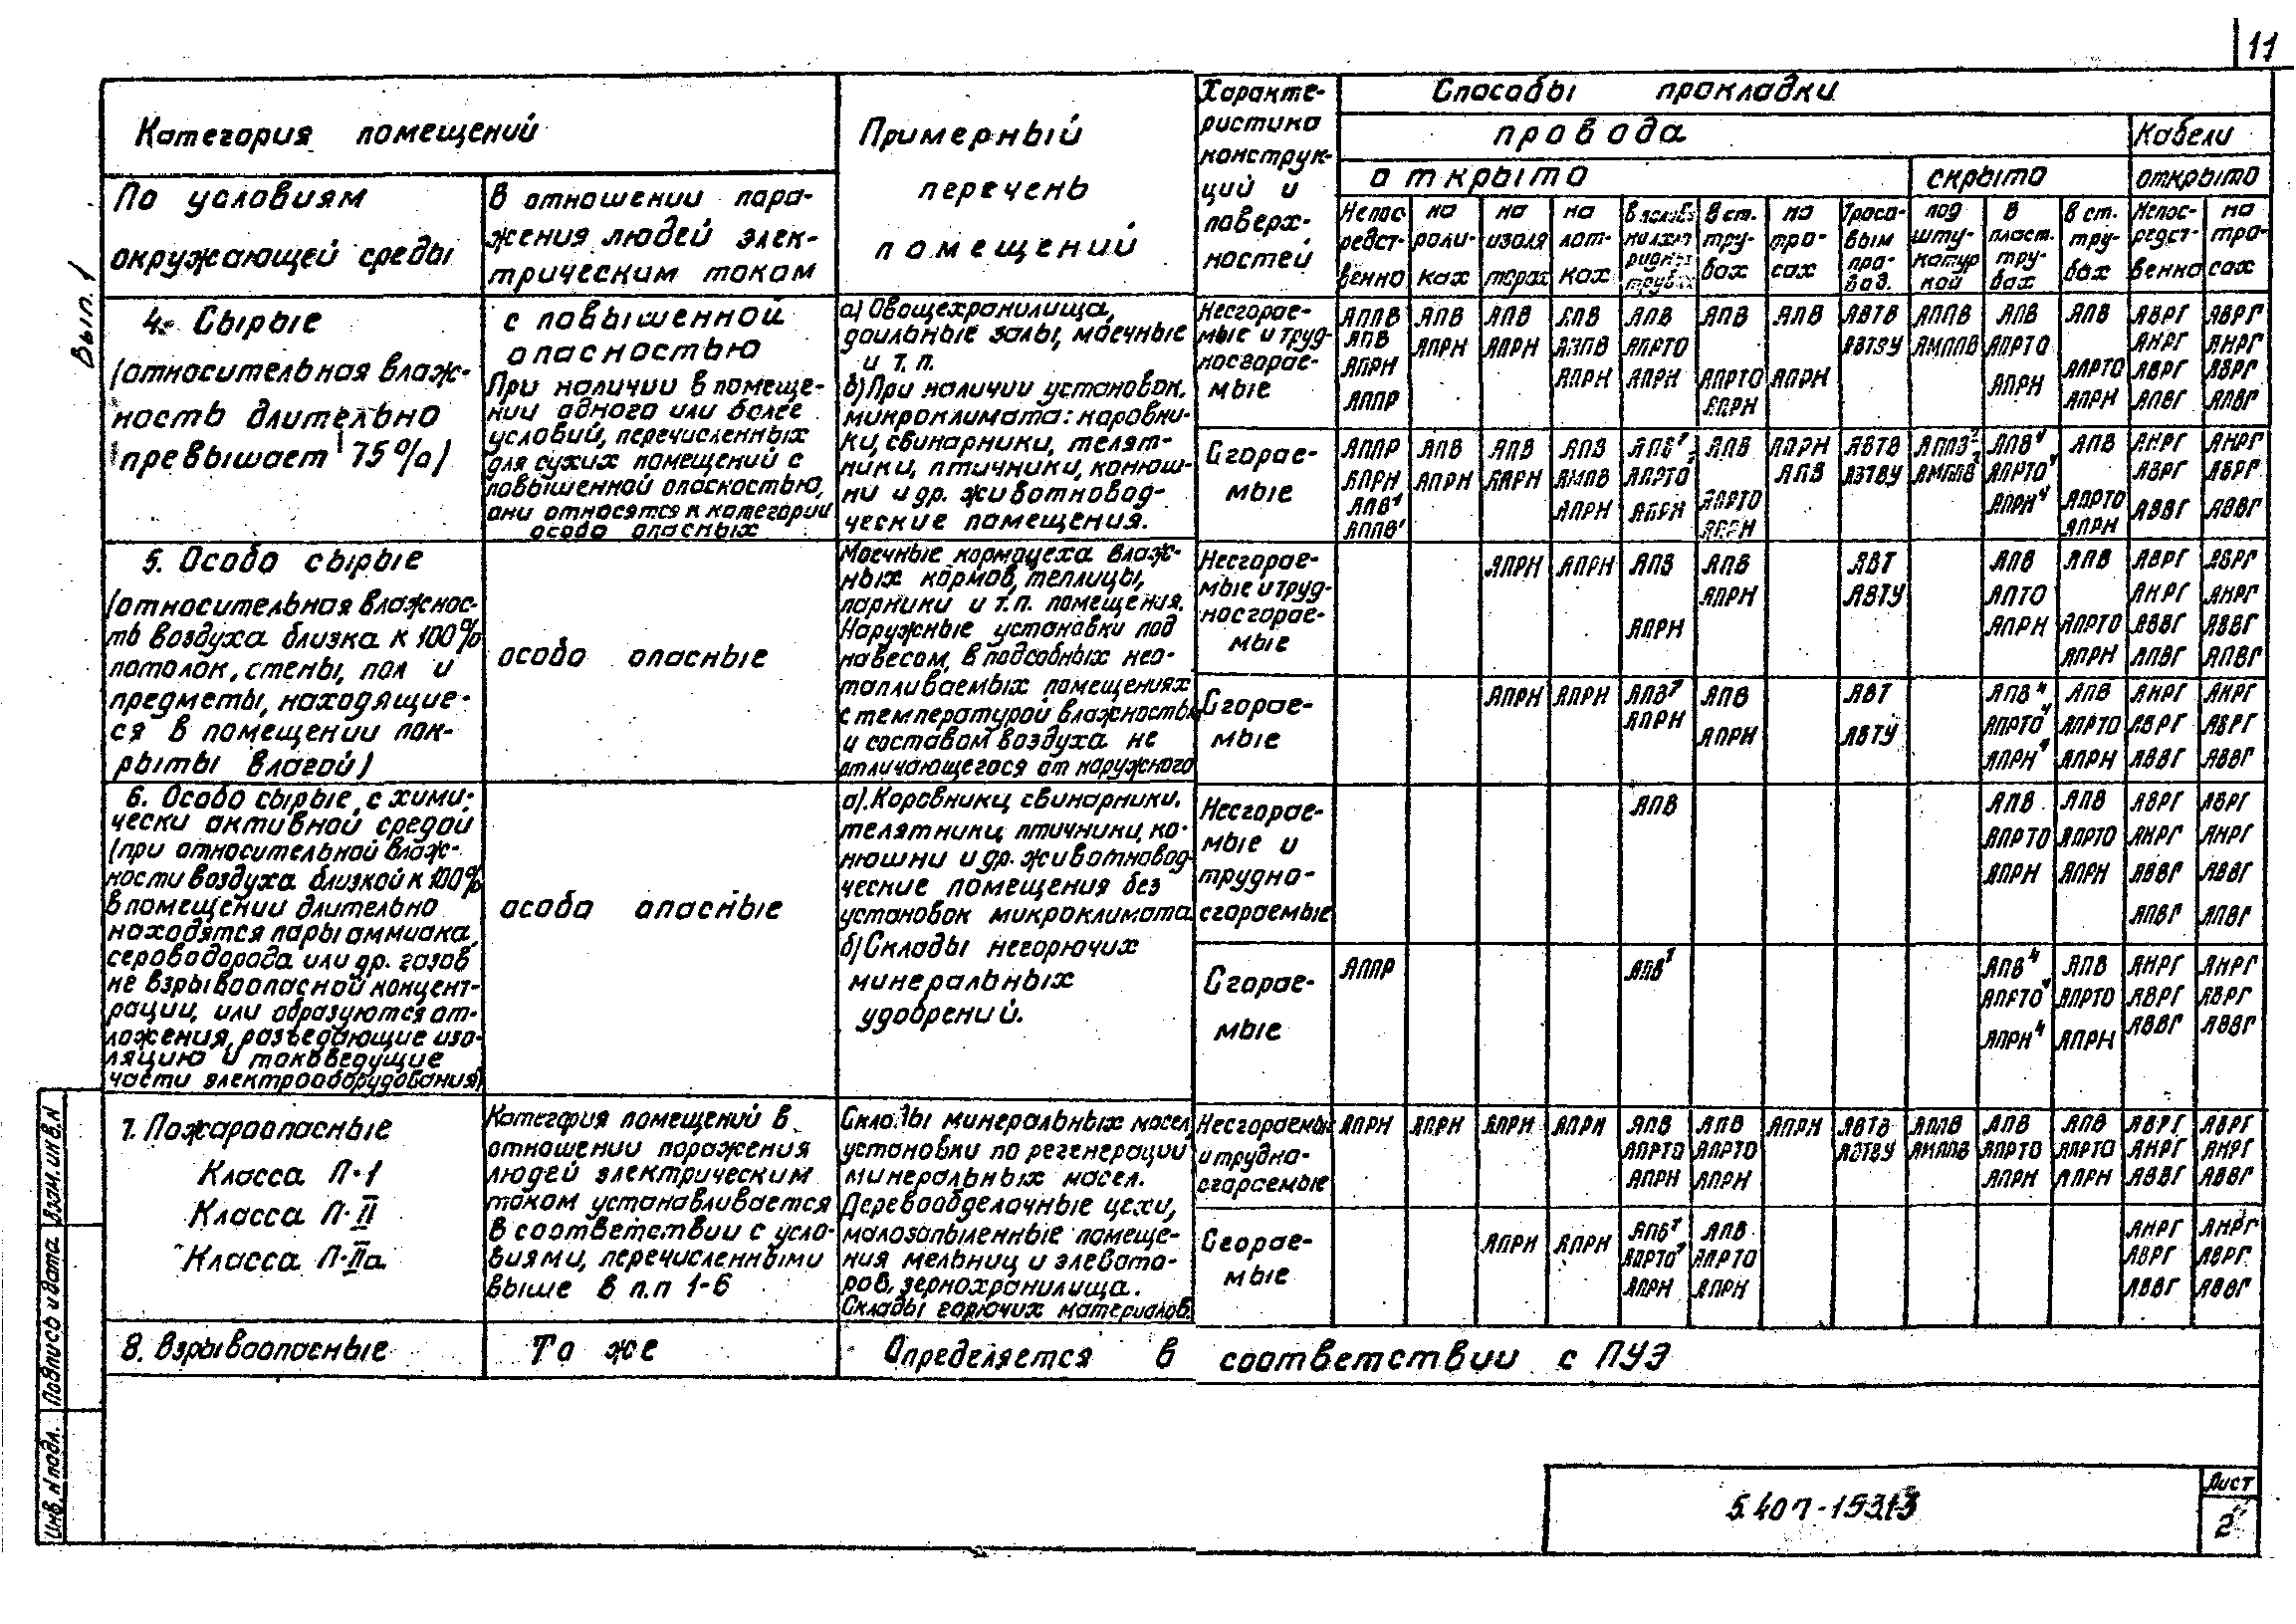 11
Вып. 1
Категория помещений
По условиям
окружающей среды
В отношении пора-
жения людей элек-
трическим током
Примерный
перечень
помещений
Характе-
ристика
конструк-
ций и
поверх-
ностей
Способы прокладки
провода
Кабели
открыто
скрыто
открыто
Непос
редст-
венно
на
роли-
ках
на
изоля
торах
на
лот-
ках
В ст.
тру-
бах
на
тро-
сах
Тросо-
вым
про-
вод.
под
шту-
катур
кой
в
пласт.
тру-
бах
в ст.
тру-
бах
Непос-
редст-
венно
на
тро-
сах
4. Сырые
(относительная влаж-
ность длительно
превышает 75%)
с повышенной
опасностью
При наличии в помеще-
нии одного или более
условий, перечисленных
для сухих помещений с
повышенной опасностью,
они относятся к категории
особо опасных
а) Овощехранилища,
доильные залы, моечные
и т.п.
б) При наличии установок.
микроклимата: коровни-
ки, свинарники, телят-
ники, птичники, конюш-
ни и др. животновод-
ческие помещения.
Несгорае-
мые и труд-
носгорае-
мые
АППВ АПВ АПВ АПВ АПВ АПВ АПВ АВТВ АППВ АПВ АПВ АВРГ АВРГ
АПВ АПРН АПРН АПРТО АВТВУ АМППВ АПРТО АНРГ АНРГ
АПРН АПРН АПРН АПРТО АПРН АПРН АПРТО
АППР АПРН АПРН АПВГ АПВГ
Сгорае-
мые
АППР АПВ АПВ АПВ АПВ АПРН АВТВ АПВ АНРГ АНРГ
АПРН АПРН АПРН АПВ АВТВУ АВРГ АВРГ
АПРН АПРН АПРТО АПРТО АВВГ АВВГ
АПРН АПРН
5. Особо сырые
(относительная влажнос-
ть воздуха близка к 100%
потолок, стены, пол и
предметы, находящие-
ся в помещении пок-
рыты влагой)
особо опасные
Моечные, кормоцеха влаж-
ных кормов, теплицы,
парники и т.п. помещения.
Наружные установки под
навесом, в подсобных нео-
топливаемых помещениях
с температурой влажностью
и составом воздуха не
отличающегося от наружного
Несгорае-
мые и труд-
носгорае-
мые
АПРН АПРН АПВ АПВ АВТ АПВ АПВ АВРГ АВРГ
АПРН АВТУ АПТО АНРГ АНРГ
АПРН АПРН АПРТО АВВГ АВВГ
АПРН АПВГ АПВГ
Сгорае-
мые
АПРН АПРН АПВ АВТ АПВ АНРГ АНРГ
АПРН АПРН АВТУ АПРТО АВРГ АВРГ
АПРН АВВГ АВВГ
6. Особо сырые, с хими-
чески активной средой
(при относительной влаж-
ности воздуха близкой к 100%
в помещении длительно
находятся пары аммиака,
сероводорода или др. газов
не взрывоопасной концент-
рации, или образуются от-
ложения, разъедающие изо-
ляцию и токоведущие
части электрооборудования)
особо опасные
а) Коровники, свинарники,
телятники, птичники, ко-
нюшни и др. животновод-
ческие помещения без
установок микроклимата
б) Склады негорючих
минеральных
удобрений.
Несгорае-
мые и
трудно-
сгораемые
АПВ АПВ АПВ АВРГ АВРГ
АПРТО АПРТО АНРГ АНРГ
АПРН АПРН АВВГ АВВГ
АПВГ АПВГ
Сгорае-
мые
АППР АПВ⁴ АПВ АНРГ АНРГ
АПРТО⁴ АПРТО АВРГ АВРГ
АПРН⁴ АПРН АВВГ АВВГ
7. Пожароопасные
Класса П-I
Класса П-II
Класса П-IIа
Категория помещений в
отношении поражения
людей электрическим
током устанавливается
в соответствии с усло-
виями, перечисленными
выше в п.п 1-6
Склады минеральных масел,
установки по регенерации
минеральных масел.
Деревообделочные цехи,
малозапыленные помеще-
ния мельниц и элевато-
ров, зернохранилища.
Склады горючих материалов.
Несгораемые
и трудно-
сгораемые
АПРН АПРН АПРН АПРН АПВ АПВ АПРН АВТВ АППВ АПВ АПВ АВРГ АВРГ
АПРТО АПРТО АВТВУ АМППВ АПРТО АПРТО АНРГ АНРГ
АПРН АПРН АПРН АПРН АВВГ АВВГ
Сгорае-
мые
АПРН АПРН АПВ АНРГ АНРГ
АПРТО АВРГ АВРГ
АПРН АПРН АВВГ АВВГ
8. Взрывоопасные
То же
Определяется в соответствии с ПУЭ
Инв. N подл.
Подпись и дата
Взам. инв. N
Лист
2